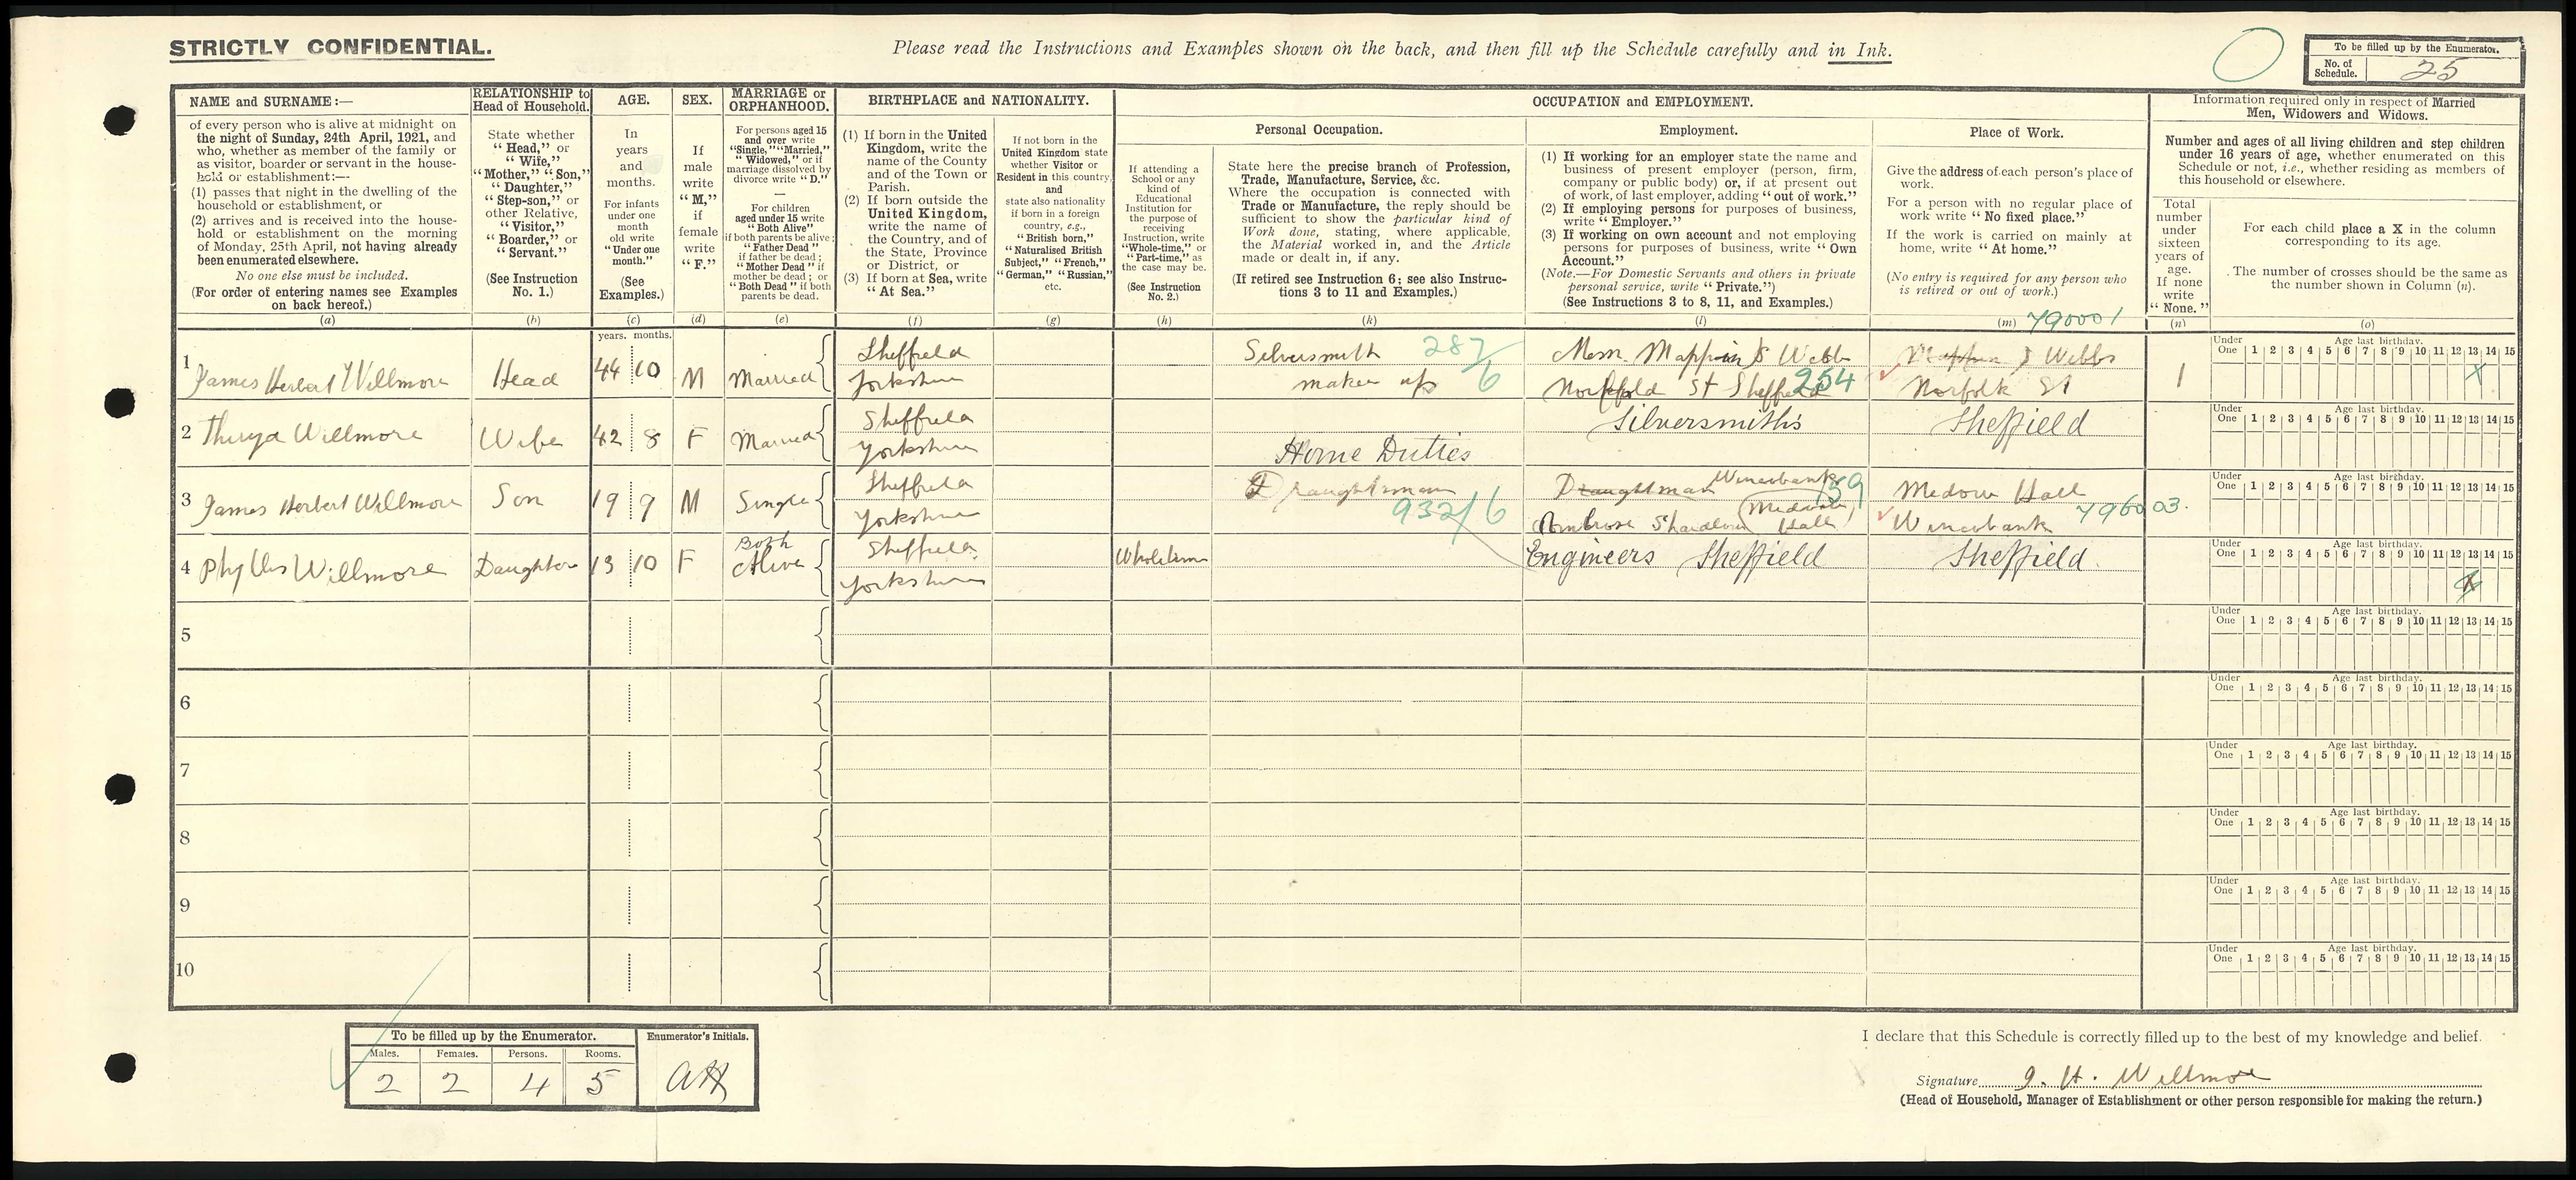 STRICTLY CONFIDENTIAL.
Please read the Instructions and Examples shown on the back, and then fill up the Schedule carefully and in Ink.
To be filled up by the Enumerator.
No. of Schedule. 25
NAME and SURNAME:—
of every person who is alive at midnight on
the night of Sunday, 24th April, 1921, and
who, whether as member of the family or
as visitor, boarder or servant in the house-
hold or establishment:—
(1) passes that night in the dwelling of the
household or establishment, or
(2) arrives and is received into the house-
hold or establishment on the morning
of Monday, 25th April, not having already
been enumerated elsewhere.
No one else must be included.
(For order of entering names see Examples
on back hereof.)
(a)
RELATIONSHIP to
Head of Household.
State whether
"Head," or
"Wife,"
"Mother," "Son,"
"Daughter,"
"Step-son," or
other Relative,
"Visitor,"
"Boarder," or
"Servant."
(See Instruction
No. 1.)
(b)
AGE.
In
years
and
months.
For infants
under one
month
old write
"Under one
month."
(See
Examples.)
(c)
SEX.
If
male
write
"M,"
if
female
write
"F."
(d)
MARRIAGE or
ORPHANHOOD.
For persons aged 15
and over write
"Single," "Married,"
"Widowed," or if
marriage dissolved by
divorce write "D."
—
For children
aged under 15 write
"Both Alive"
if both parents be alive;
"Father Dead"
if father be dead;
"Mother Dead" if
mother be dead; or
"Both Dead" if both
parents be dead.
(e)
BIRTHPLACE and NATIONALITY.
(1) If born in the United
Kingdom, write the
name of the County
and of the Town or
Parish.
(2) If born outside the
United Kingdom,
write the name of
the Country, and of
the State, Province
or District, or
(3) If born at Sea, write
"At Sea."
(f)
If not born in the
United Kingdom state
whether Visitor or
Resident in this country,
and
state also nationality
if born in a foreign
country, e.g.,
"British born,"
"Naturalised British
Subject," "French,"
"German," "Russian,"
etc.
(g)
OCCUPATION and EMPLOYMENT.
Personal Occupation.
If attending a
School or any
kind of
Educational
Institution for
the purpose of
receiving
Instruction, write
"Whole-time," or
"Part-time," as
the case may be.
(See Instruction
No. 2.)
(h)
State here the precise branch of Profession,
Trade, Manufacture, Service, &c.
Where the occupation is connected with
Trade or Manufacture, the reply should be
sufficient to show the particular kind of
Work done, stating, where applicable,
the Material worked in, and the Article
made or dealt in, if any.
(If retired see Instruction 6; see also Instruc-
tions 3 to 11 and Examples.)
(k)
Employment.
(1) If working for an employer state the name and
business of present employer (person, firm,
company or public body) or, if at present out
of work, of last employer, adding "out of work."
(2) If employing persons for purposes of business,
write "Employer."
(3) If working on own account and not employing
persons for purposes of business, write "Own
Account."
(Note.—For Domestic Servants and others in private
personal service, write "Private.")
(See Instructions 3 to 8, 11, and Examples.)
(l)
Place of Work.
Give the address of each person's place of
work.
For a person with no regular place of
work write "No fixed place."
If the work is carried on mainly at
home, write "At home."
(No entry is required for any person who
is retired or out of work.)
(m) 790001
Information required only in respect of Married
Men, Widowers and Widows.
Number and ages of all living children and step children
under 16 years of age, whether enumerated on this
Schedule or not, i.e., whether residing as members of
this household or elsewhere.
Total
number
under
sixteen
years of
age.
If none
write
"None."
(n)
For each child place a X in the column
corresponding to its age.
The number of crosses should be the same as
the number shown in Column (n).
(o)
years. months.
1 James Herbert Willmore Head 44 10 M Married Sheffield Yorkshire
Silversmith 287/6
maker up
Mssrs. Mappin & Webb
Norfolk St Sheffield 254
Silversmiths
Mappin & Webbs
Norfolk St
Sheffield
1
X
2 Thirza Willmore Wife 42 8 F Married Sheffield Yorkshire
Home Duties
3 James Herbert Willmore Son 19 9 M Single Sheffield Yorkshire
Draughtsman
932/6
Draughtman Wincobank 159
Ambrose Shardlow (Medow Hall)
Engineers Sheffield
Medow Hall
Wincobank 796003.
Sheffield
4 Phyllis Willmore Daughter 13 10 F Both Alive Sheffield Yorkshire
Wholetime
X
5
6
7
8
9
10
Under One Age last birthday. 1 2 3 4 5 6 7 8 9 10 11 12 13 14 15
Under One Age last birthday. 1 2 3 4 5 6 7 8 9 10 11 12 13 14 15
Under One Age last birthday. 1 2 3 4 5 6 7 8 9 10 11 12 13 14 15
Under One Age last birthday. 1 2 3 4 5 6 7 8 9 10 11 12 13 14 15
Under One Age last birthday. 1 2 3 4 5 6 7 8 9 10 11 12 13 14 15
Under One Age last birthday. 1 2 3 4 5 6 7 8 9 10 11 12 13 14 15
Under One Age last birthday. 1 2 3 4 5 6 7 8 9 10 11 12 13 14 15
Under One Age last birthday. 1 2 3 4 5 6 7 8 9 10 11 12 13 14 15
Under One Age last birthday. 1 2 3 4 5 6 7 8 9 10 11 12 13 14 15
Under One Age last birthday. 1 2 3 4 5 6 7 8 9 10 11 12 13 14 15
To be filled up by the Enumerator.
Enumerator's Initials.
Males. Females. Persons. Rooms.
2 2 4 5
AH
I declare that this Schedule is correctly filled up to the best of my knowledge and belief.
Signature J. H. Willmore
(Head of Household, Manager of Establishment or other person responsible for making the return.)